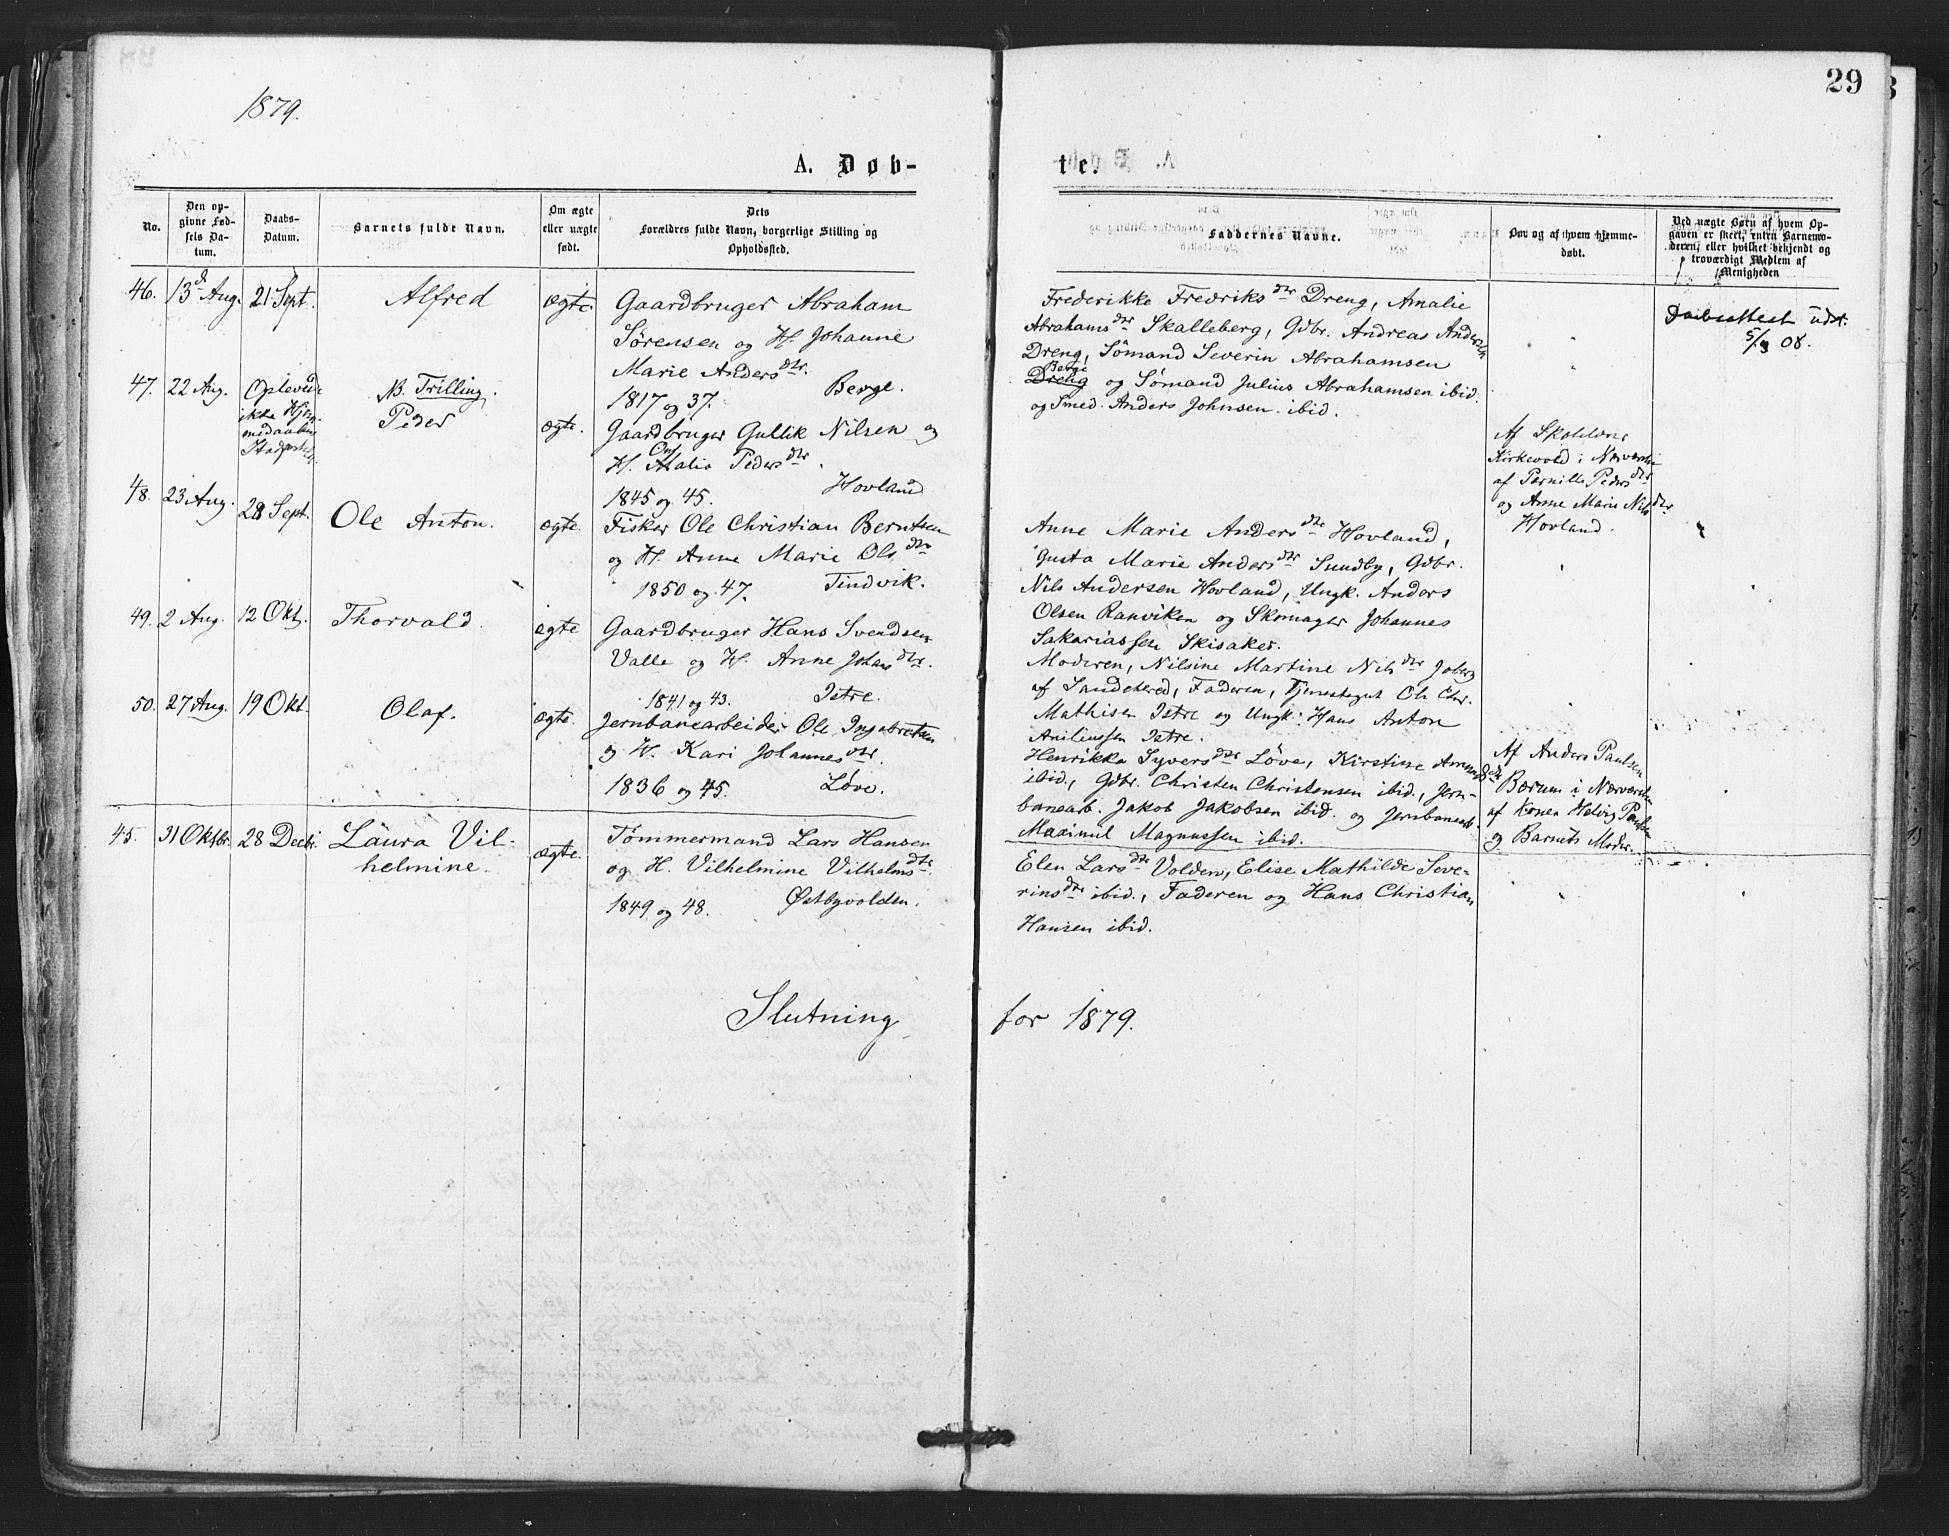 1879.
29
A. Døb-
te.
No.
Den op-
givne Fød-
sels Da-
tum.
Daabs-
Datum.
Barnets fulde Navn.
Om ægte
eller uægte
født.
Dets
Forældres fulde Navn, borgerlige Stilling og
Opholdssted.
Faddernes Navne.
Naar og af hvem hjemme-
døbt.
Ved uægte Børn af hvem Op-
gaven er skeet, enten Barnemo-
deren, eller hvilket bekjendt og
troværdigt Medlem af
Menigheden
46.
13d Aug.
21 Sept.
Alfred
ægte.
Gaardbruger Abraham
Sørensen og H. Johanne
Marie Andersdtr.
1817 og 37. Berge.
Frederikke Fredriksdtr Dreng, Amalie
Abrahamsdtr Skalleberg, Gdbr. Andreas Andersen
Dreng, Sømand Severin Abrahamsen
Berge
Dreng og Sømand Julius Abrahamsen ibid.
og Smed Anders Johnsen ibid.
Daabsattest udst.
5/3 08.
47.
22 Aug.
Oplevede
ikke Hjem-
medaabens
Stadfæstelse
NB. Trilling.
Peder
ægte.
Gaardbruger Gullik Nilsen og
H. Malia Pedersdtr.
1845 og 45. Hovland
Af Skolelærer
Kirkevold i Nærværelse
af Pernille Pedersdtr
og Anne Marie Nilsdtr
Hovland.
48.
23 Aug.
28 Sept.
Ole Anton.
ægte.
Fisker Ole Christian Berntsen
og H. Anne Marie Olsdtr
1850 og 47. Tindvik.
Anne Marie Andersdtr Hovland,
Gusta Marie Andersdtr Sundby, Gdbr.
Nils Andersen Hovland, Ungk. Anders
Olsen Ranviken og Skomager Johannes
Sakariassen Skisaker.
49.
2 Aug.
12 Okt.
Thorvald.
ægte
Gaardbruger Hans Svendsen
Valle og H. Anne Johansdtr.
1841 og 43. Istre.
Moderen, Nilsine Martine Nilsdtr Joberg
af Sandehered, Faderen, Tjenestegut Ole Chr.
Mathisen Istre og Ungk. Hans Anton
Aniliussen Istre.
50.
27 Aug.
19 Okt.
Olaf.
ægte.
Jernbanearbeider Ole Ingebretsen
og H. Kari Johannesdtr.
1836 og 45. Løve.
Henrikke Syversdtr Løve, Kirstine
ibid., Gdbr. Christen Christensen ibid., Jern-
banearb. Jakob Jakobsen ibid. og Jernbanearb.
Maximil Magnussen ibid.
Af Anders Paulsen
Børum i Nærværelse
af Konen Helvig Paulsen
og Barnets Moder.
45.
31 Oktbr.
28 Decbr.
Laura Vil-
helmine.
ægte.
Tømmermand Lars Hansen
og H. Vilhelmine Vilhelmsdtr.
1849 og 48. Østbyvolden.
Elen Larsdtr Volden, Elise Mathilde Seve-
rinsdtr ibid., Faderen og Hans Christian
Hansen ibid.
Slutning
for 1879.